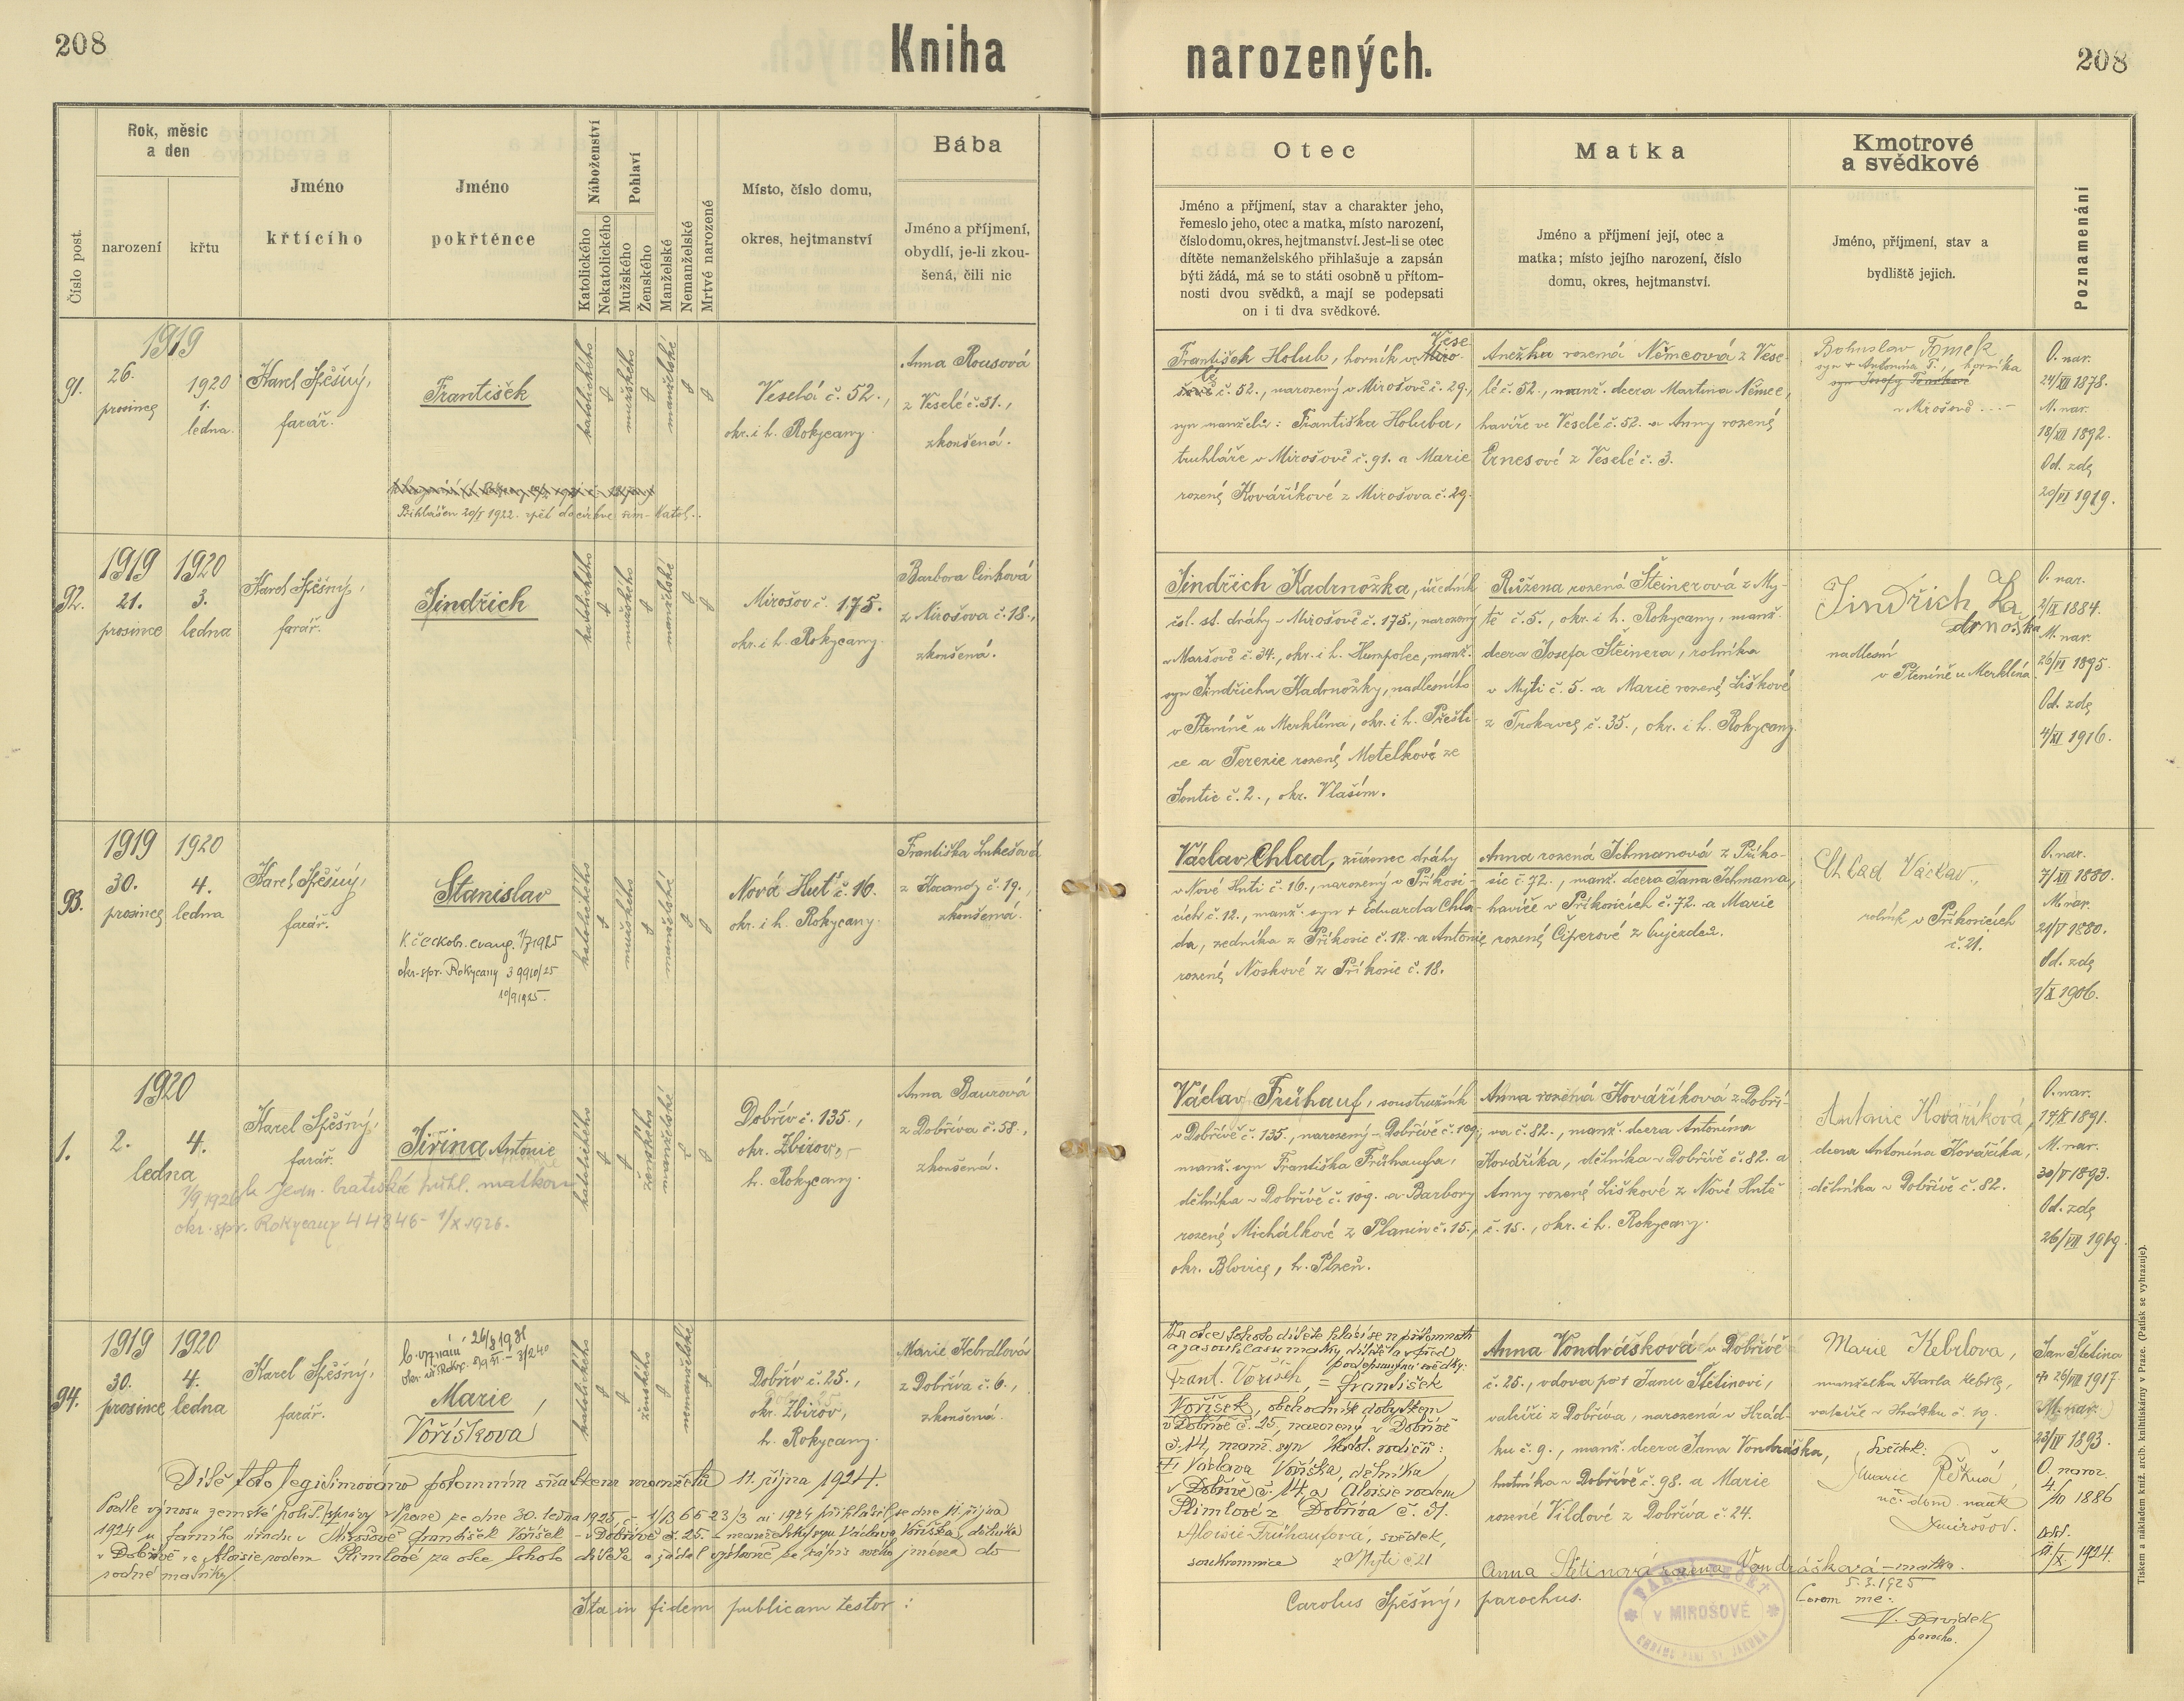 208
Kniha
narozených.
208
Číslo post.
Rok, měsíc
a den
narození
křtu
Jméno
křtícího
Jméno
pokřtěnce
Náboženství
Katolického
Nekatolického
Pohlaví
Mužského
Ženského
Manželské
Nemanželské
Mrtvé narozené
Místo, číslo domu,
okres, hejtmanství
Bába
Jméno a příjmení,
obydlí, je-li zkou-
šená, čili nic
Otec
Jméno a příjmení, stav a charakter jeho,
řemeslo jeho, otec a matka, místo narození,
číslo domu, okres, hejtmanství. Jest-li se otec
dítěte nemanželského přihlašuje a zapsán
býti žádá, má se to státi osobně u přítom-
nosti dvou svědků, a mají se podepsati
on i ti dva svědkové.
Matka
Jméno a příjmení její, otec a
matka; místo jejího narození, číslo
domu, okres, hejtmanství.
Kmotrové
a svědkové
Jméno, příjmení, stav a
bydliště jejich.
Poznamenání
91.
1919
26.
prosince
1920
1.
ledna
Karel Spěšný,
farář.
František
Přihlášen 20/I 1922 zpět do církve řím. katol.
katolického
mužského
manželské
Veselá č. 52.,
okr. i h. Rokycany.
Anna Rousová
z Veselé č. 51.,
zkoušená.
František Holub, horník ve Vese-
lé č. 52., narozený v Mirošově č. 29.,
syn manželů: Františka Holuba,
truhláře v Mirošově č. 91. a Marie
rozené Kováříkové z Mirošova č. 29.
Anežka rozená Němcová z Vese-
lé č. 52., manž. dcera Martina Němce,
havíře ve Veselé č. 52. a Anny rozené
Ernesové z Veselé č. 3.
Bohuslav Tomek
syn + Antonína T., horníka
v Mirošově
O. nar.
24/XII 1878.
M. nar.
18/XII 1892.
Od. zde
20/VI 1919.
92.
1919
21.
prosince
1920
3.
ledna
Karel Spěšný,
farář.
Jindřich
katolického
mužského
manželské
Mirošov č. 175.
okr. i h. Rokycany.
Barbora Cinková
z Mirošova č. 18.,
zkoušená.
Jindřich Kadrnožka, úředník
čsl. st. dráhy v Mirošově č. 175., narozený
v Maršově č. 34., okr. i h. Humpolec, manž.
syn Jindřicha Kadrnožky, nadlesního
v Pteníně u Merklína, okr. i h. Přešti-
ce a Terezie rozené Motelkové ze
Sontic č. 2., okr. Vlašim.
Růžena rozená Šteinerová z My-
tě č. 5., okr. i h. Rokycany, manž.
dcera Josefa Šteinera, rolníka
v Mýtě č. 5. a Marie rozené Liškové
z Trokavce č. 35., okr. i h. Rokycany.
Jindřich Ka
drnožka
nadlesní
v Pteníně u Merklína
O. nar.
2/IX 1884.
M. nar.
26/VI 1895.
Od. zde
4/XI 1916.
93.
1919
30.
prosince
1920
4.
ledna
Karel Spěšný,
farář.
Stanislav
k českobr. evang. 1/7 1925
okr. spr. Rokycany 39910/25
10/9 1925.
katolického
mužského
manželské
Nová Huť č. 16.
okr. i h. Rokycany.
Františka Lukešová
z Kocandy č. 19.,
zkoušená.
Václav Chlad, zřízenec dráhy
v Nové Huti č. 16., narozený v Příkosi-
cích č. 12., manž. syn + Eduarda Chla-
da, zedníka z Příkosic č. 12. a Antonie
rozené Noskové z Příkosic č. 18.
Anna rozená Ichmanová z Příko-
sic č. 72., manž. dcera Jana Ichmana,
havíře v Příkosicích č. 72. a Marie
rozené Ciperové z Újezdce.
Chlad Václav,
rolník v Příkosicích
č. 21.
O. nar.
7/XII 1880.
M. nar.
21/V 1880.
Od. zde
1/X 1906.
1.
1920
2.
4.
ledna
Karel Spěšný,
farář.
Jiřina Antonie
7/9 1926 k Jedn. bratrské přihl. matkou
okr. spr. Rokycany 44846 - 1/X 1926.
katolického
ženského
manželské
Dobřív č. 135.,
okr. Zbirov,
h. Rokycany.
Anna Baurová
z Dobříva č. 58.,
zkoušená.
Václav Frühauf, soustružník
v Dobřívě č. 135., narozený v Dobřívě č. 109.,
manž. syn Františka Frühaufa,
dělníka v Dobřívě č. 109. a Barbory
rozené Michálkové z Planin č. 15.,
okr. Blovice, h. Plzeň.
Anna rozená Kováříková z Dobří-
va č. 82., manž. dcera Antonína
Kováříka, dělníka v Dobřívě č. 82. a
Anny rozené Liškové z Nové Hutě
č. 15., okr. i h. Rokycany.
Antonie Kováříková,
dcera Antonína Kováříka,
dělníka v Dobřívě č. 82.
O. nar.
17/X 1891.
M. nar.
30/V 1893.
Od. zde
26/VII 1919.
94.
1919
30.
prosince
1920
4.
ledna
Karel Spěšný,
farář.
b. vyznání 26/3 1931
Marie,
Voříškova
katolického
ženského
nemanželské
Dobřív č. 25.,
okr. Zbirov,
h. Rokycany.
Marie Kebrdlová
z Dobříva č. 6.,
zkoušená.
Za otce tohoto dítěte hlásí se v přítomnosti
a za souhlasu matky dítěte a před
podepsanými svědky:
Frant. Voříšek = František
Voříšek, obchodník dobytkem
v Dobřívě č. 25, narozený v Dobřívě
č. 14, manž. syn katol. rodičů:
Václava Voříška, dělníka
v Dobřívě č. 14 a Aloisie rodem
Štimlové z Dobříva č. 31.
Aloisie Frühaufová, svědek,
soukromnice z Mýti č. 21
Anna Vondrášková v Dobřívě
č. 25., vdova po + Janu Štětinovi,
valcíři z Dobříva, narozená v Hrád-
ku č. 9., manž. dcera Jana Vondráška,
hutníka v Dobřívě č. 98. a Marie
rozené Vildové z Dobříva č. 24.
Anna Štětinová rozená Vondrášková - matka.
Marie Kebrlova,
manželka Karla Kebrle,
valcíře v Hrádku č. 19.
Svědek:
Marie
uč. dom. nauk
Mirošov.
Jan Štětina
+ 26/VIII 1917.
M. nar.
23/IV 1893.
O. naroz.
4/10 1886
Odd.
11/X. 1924.
Dítě toto legitimováno potomním sňatkem manželů 11. října 1924.
Podle výnosu zemské polit. správy v Praze ze dne 30. ledna 1925, č. 1/B 6623/3 ai 1924 přihlásil se dne 11. října
1924 u farního úřadu v Mirošově František Voříšek v Dobřívě č. 25. manželský syn Václava Voříška, dělníka
v Dobřívě a Aloisie rodem Štimlové za otce tohoto dítěte a žádal výslovně za zápis svého jména do
rodné matriky.
Ita in fidem publicam testor:
Carolus Spěšný, parochus.
V MIROŠOVĚ
5. 3. 1925
Coram me:
V. Davídek
parocho.
Tiskem a nákladem kníž. arcib. knihtiskárny v Praze. (Patisk se vyhrazuje).